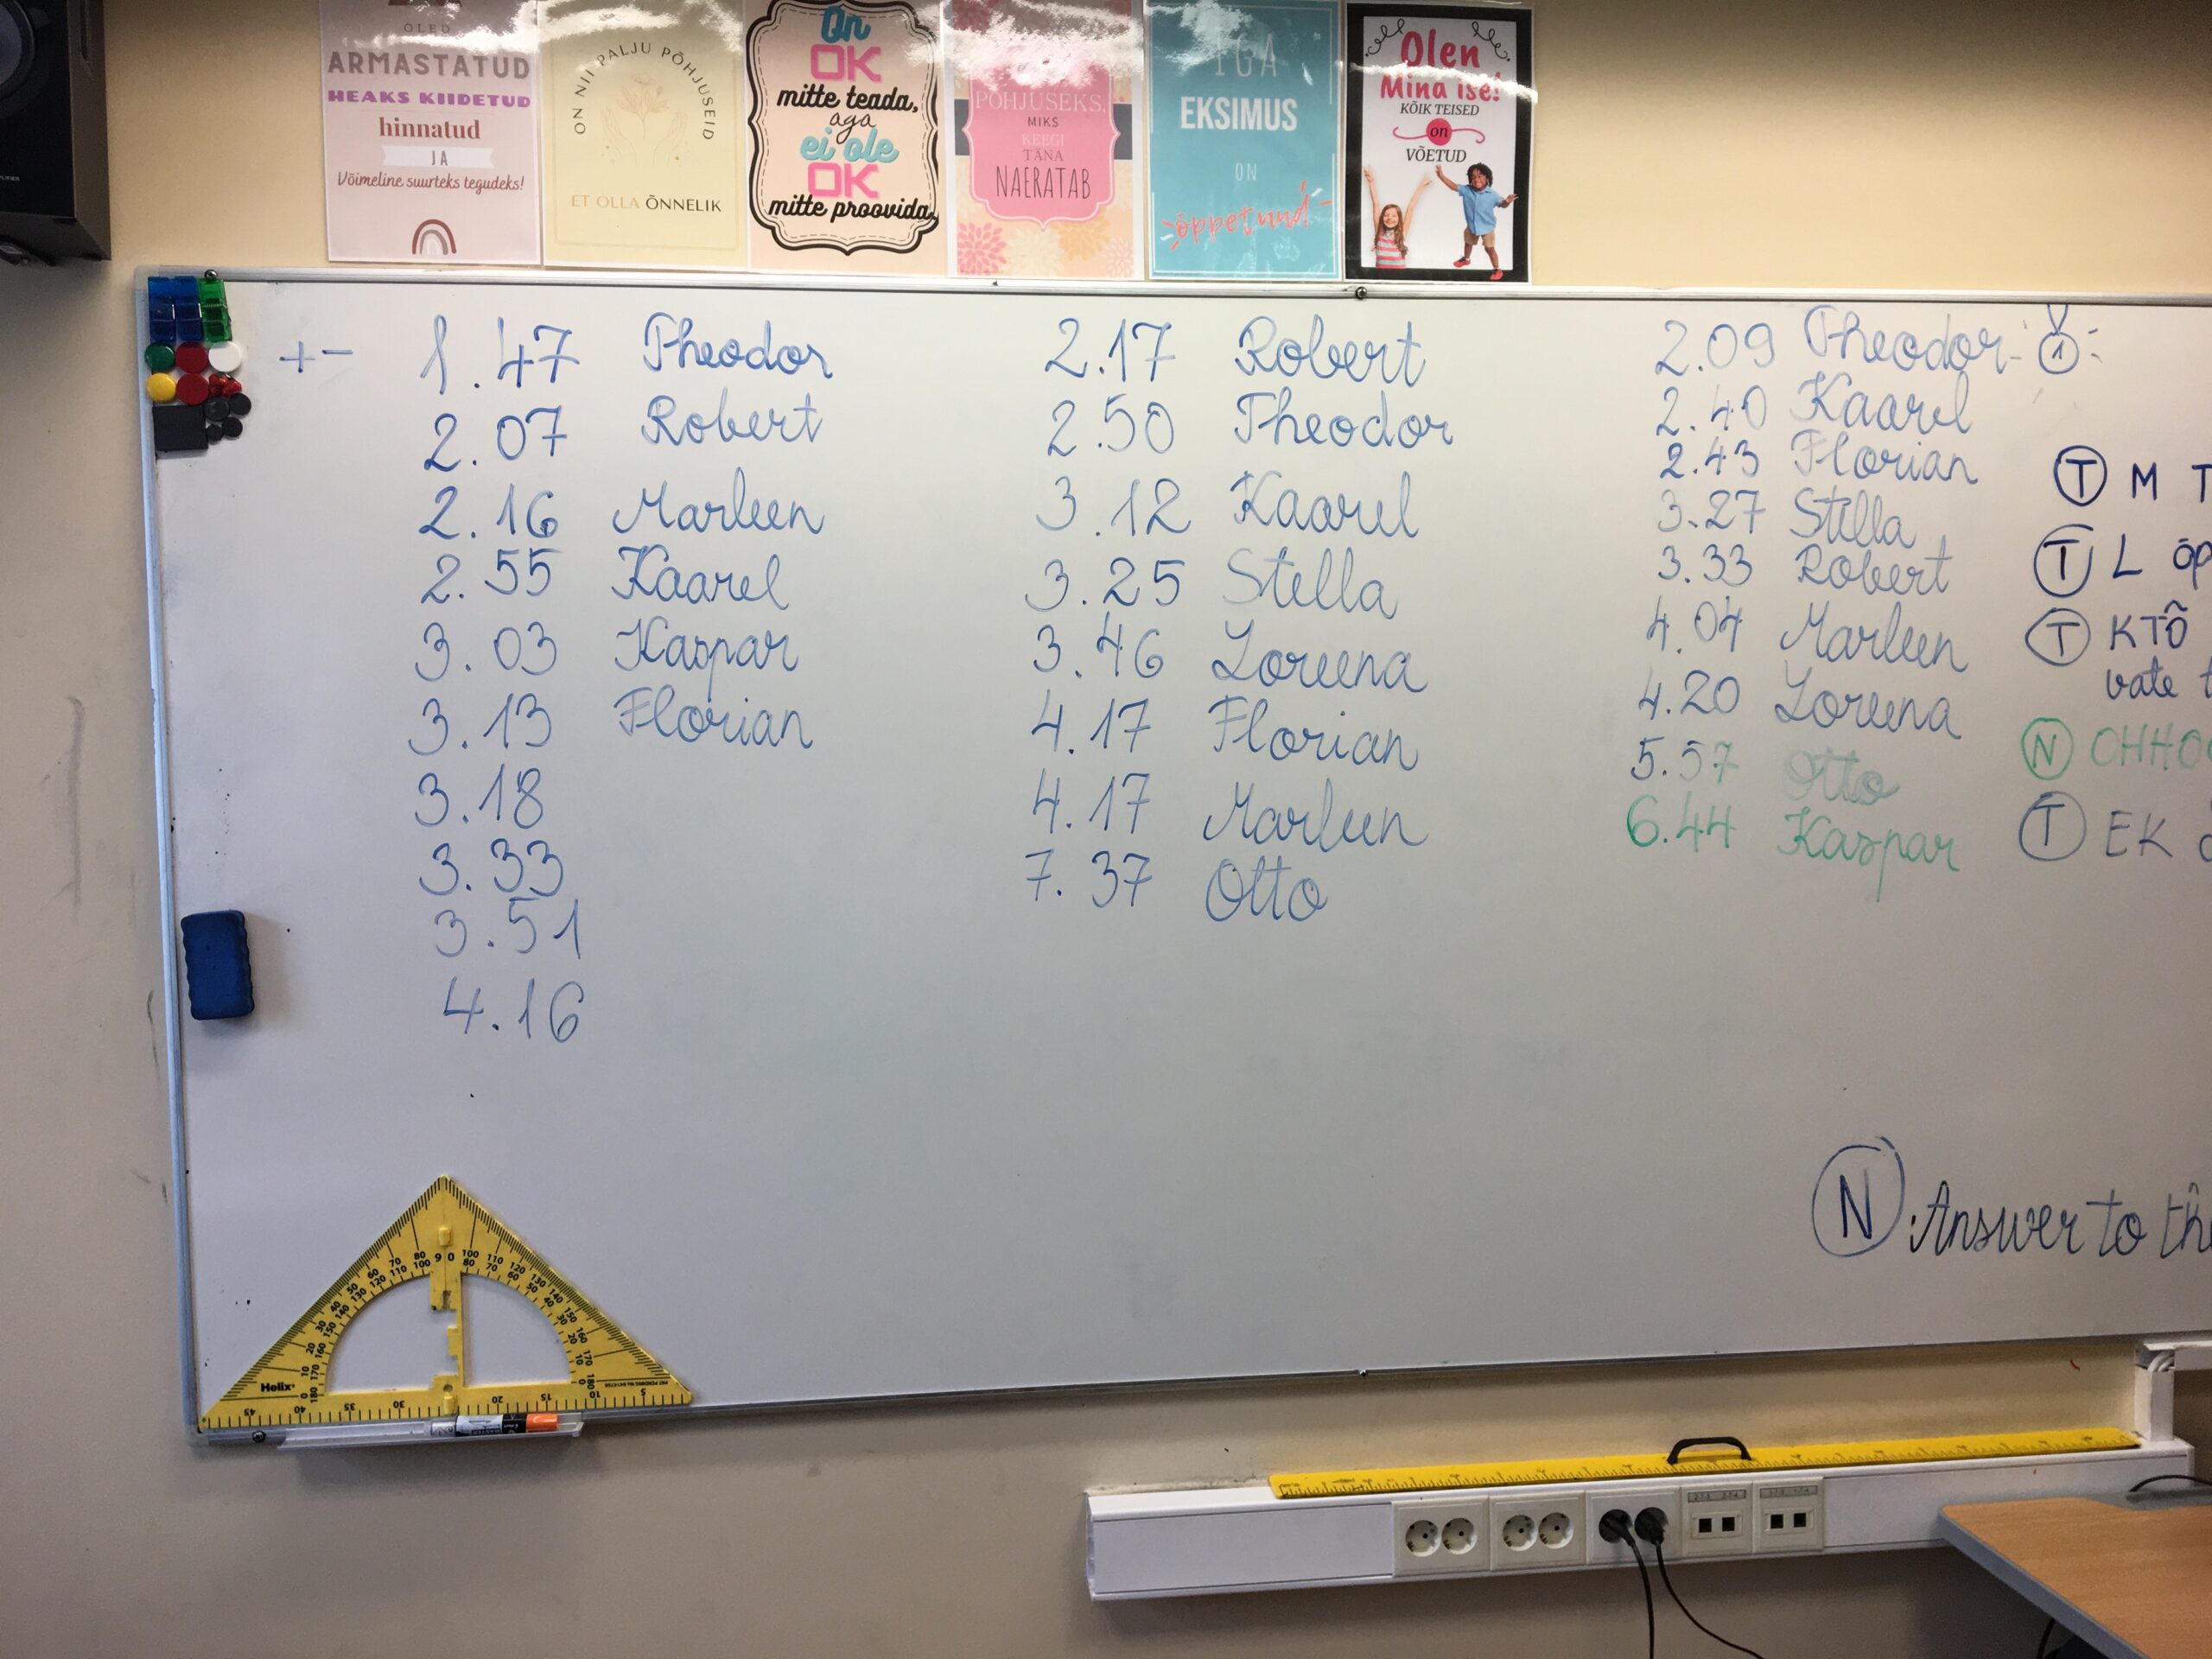 OLED
ARMASTATUD
HEAKS KIIDETUD
hinnatud
JA
Võimeline suurteks tegudeks!
ON NII PALJU PÕHJUSEID
ET OLLA ÕNNELIK
On
OK
mitte teada,
aga
ei ole
OK
mitte proovida
PÕHJUSEKS,
MIKS
KEEGI
TÄNA
NAERATAB
IGA
EKSIMUS
ON
õppetund
Olen
Mina ise!
KÕIK TEISED
on
VÕETUD
+ -
1.47 Theodor
2.07 Robert
2.16 Marleen
2.55 Kaarel
3.03 Kaspar
3.13 Florian
3.18
3.33
3.51
4.16
2.17 Robert
2.50 Theodor
3.12 Kaarel
3.25 Stella
3.46 Loreena
4.17 Florian
4.17 Marleen
7.37 Otto
2.09 Theodor 1
2.40 Kaarel
2.43 Florian
3.27 Stella
3.33 Robert
4.04 Marleen
4.20 Loreena
5.57 Otto
6.44 Kaspar
T M T
T L õp
T KTÕ
vate t
N OHHO
T EK
N Answer to the
Helix